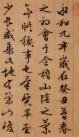 永和九年歲在癸丑暮春
之初會于會稽山陰之蘭
亭脩稧事也羣賢畢至
少長咸集此地有崇山峻